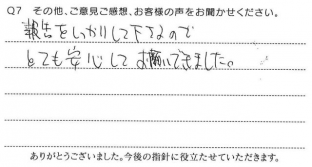 Q7 その他、ご意見ご感想、お客様の声をお聞かせください。
報告をしっかりして下さるので
とても安心してお願いできました。
ありがとうございました。今後の指針に役立たせていただきます。